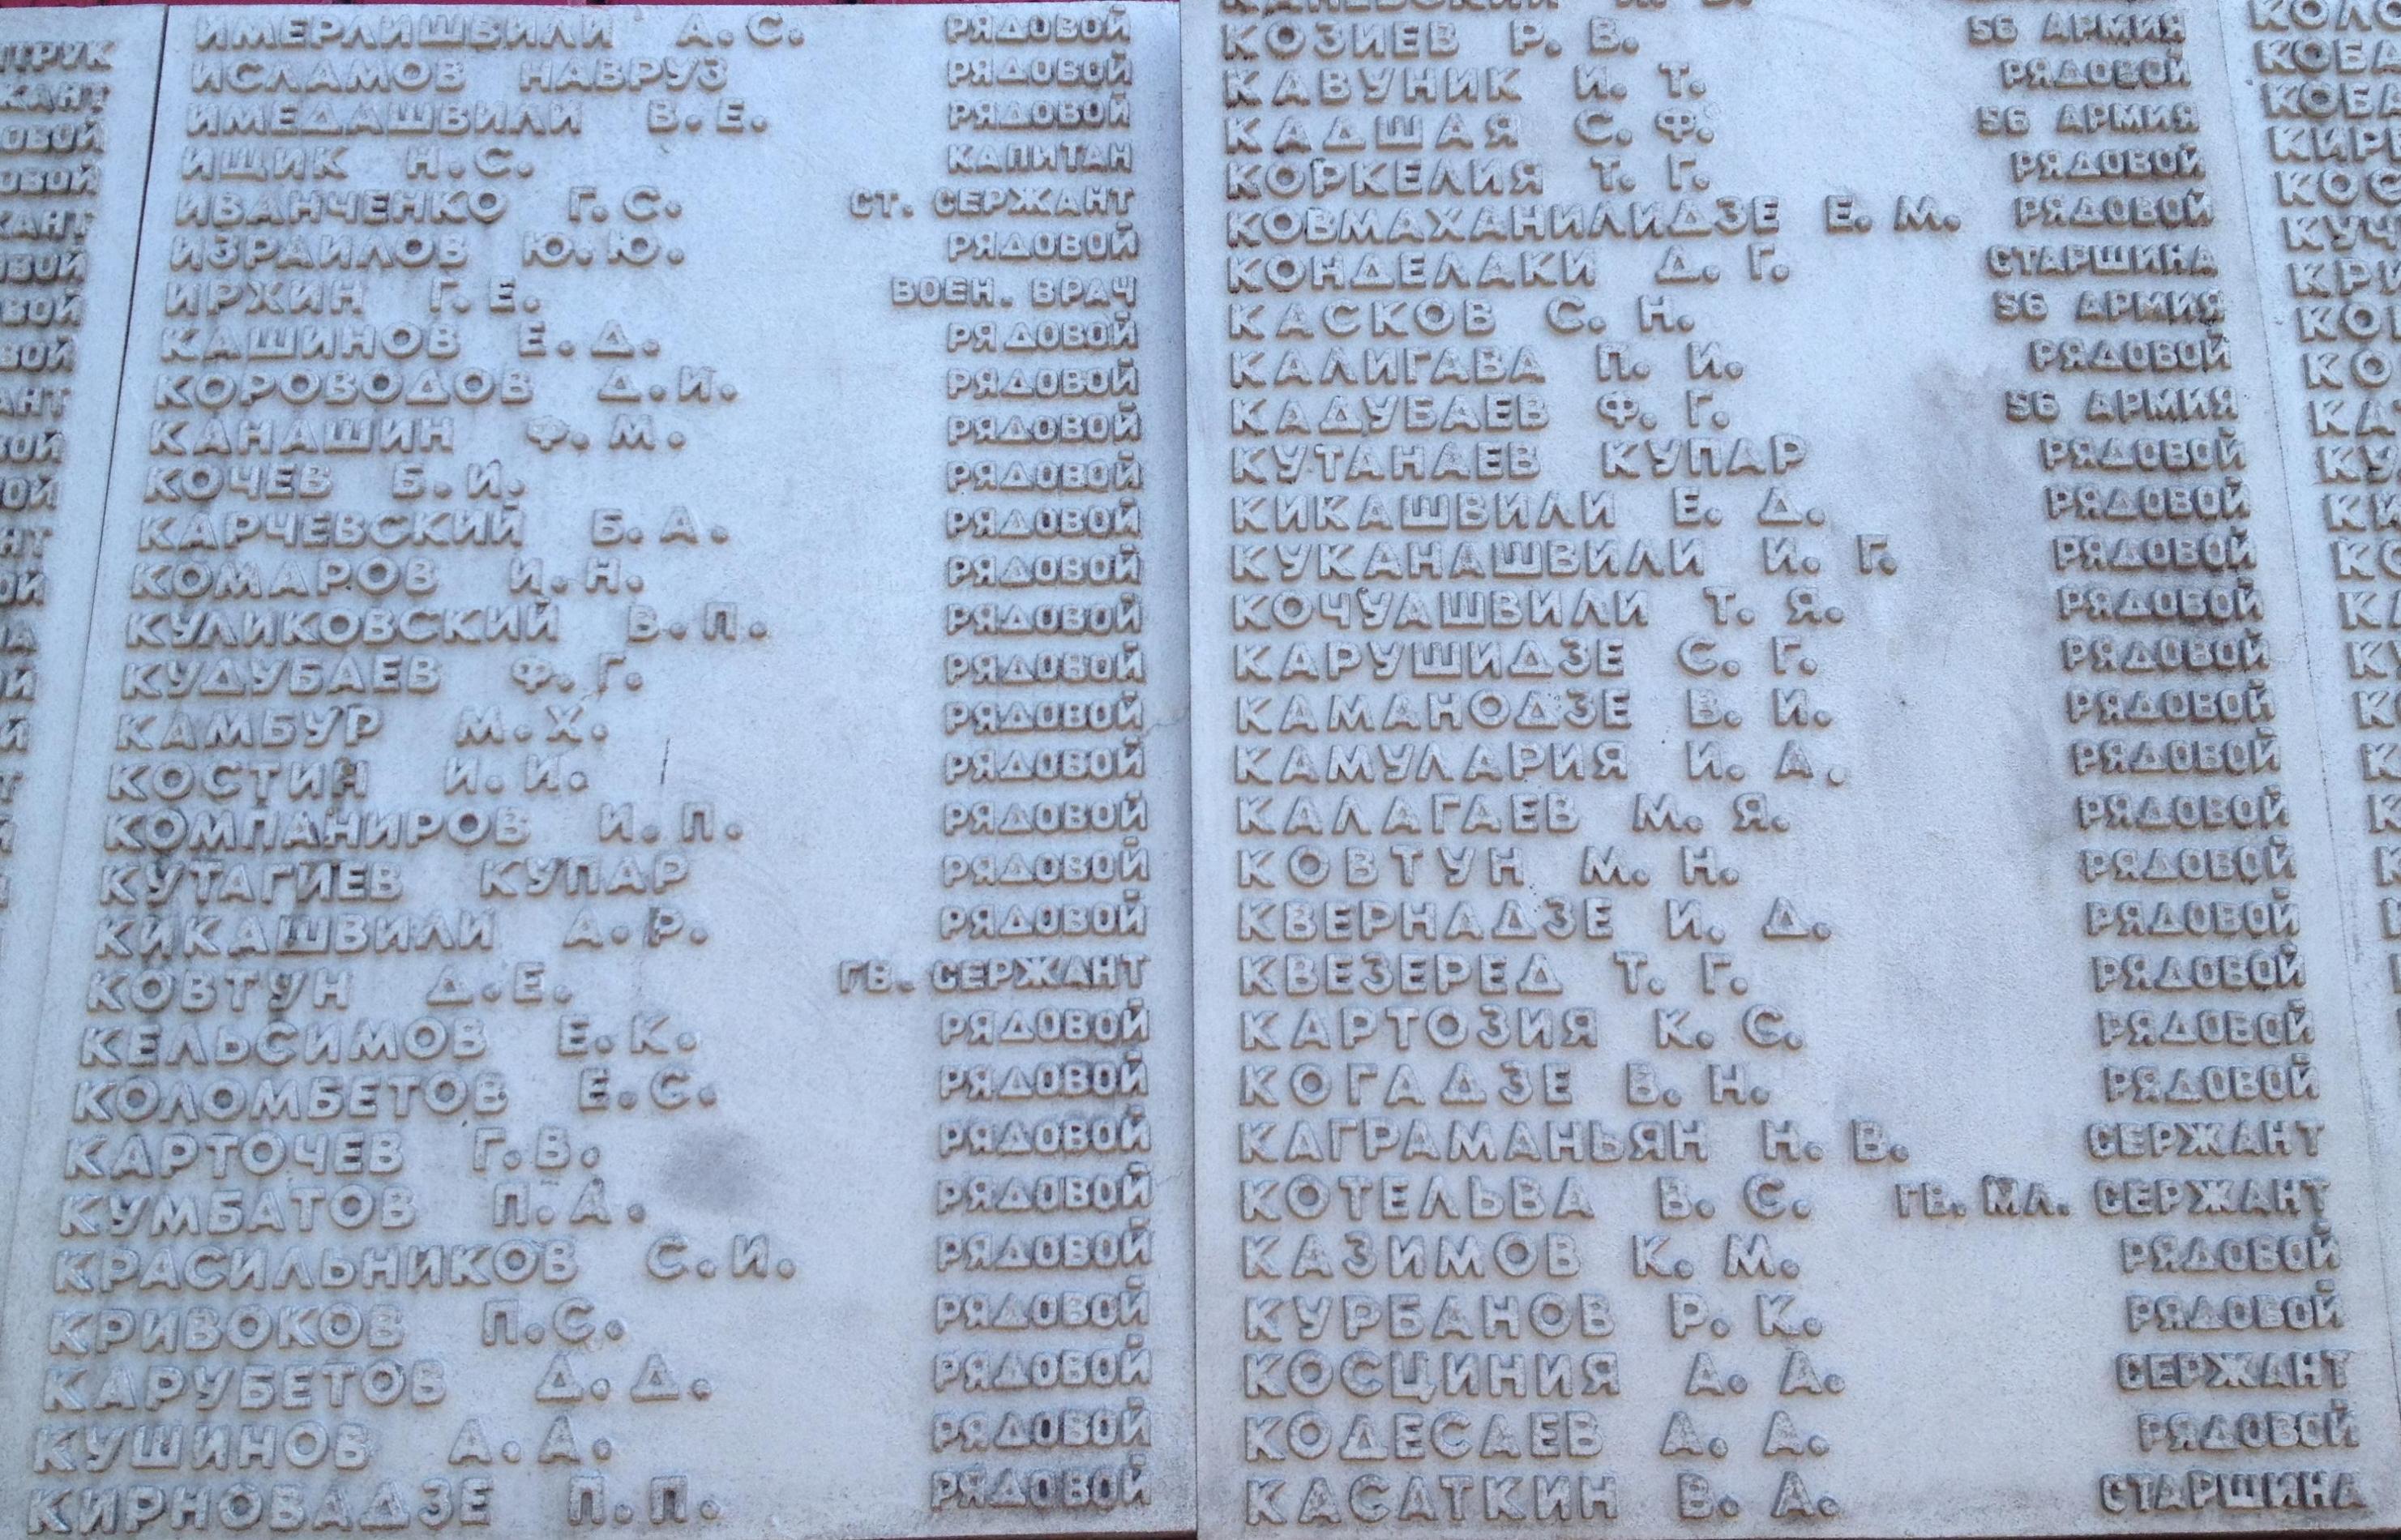 ИМЕРЛИШВИЛИ А.С. РЯДОВОЙ
ИСЛАМОВ НАВРУЗ РЯДОВОЙ
ИМЕДАШВИЛИ В.Е. РЯДОВОЙ
ИЩИК Н.С. КАПИТАН
ИВАНЧЕНКО Г.С. СТ. СЕРЖАНТ
ИЗРАИЛОВ Ю.Ю. РЯДОВОЙ
ИРХИН Г.Е. ВОЕН. ВРАЧ
КАШИНОВ Е.Д. РЯДОВОЙ
КОРОВОДОВ Д.И. РЯДОВОЙ
КАНАШИН Ф.М. РЯДОВОЙ
КОЧЕВ Б.И. РЯДОВОЙ
КАРЧЕВСКИЙ Б.А. РЯДОВОЙ
КОМАРОВ И.Н. РЯДОВОЙ
КУЛИКОВСКИЙ В.П. РЯДОВОЙ
КУДУБАЕВ Ф.Г. РЯДОВОЙ
КАМБУР М.Х. РЯДОВОЙ
КОСТИН И.И. РЯДОВОЙ
КОМПАНИРОВ И.П. РЯДОВОЙ
КУТАГИЕВ КУПАР РЯДОВОЙ
КИКАШВИЛИ А.Р. РЯДОВОЙ
КОВТУН Д.Е. ГВ. СЕРЖАНТ
КЕЛЬСИМОВ Е.К. РЯДОВОЙ
КОЛОМБЕТОВ Е.С. РЯДОВОЙ
КАРТОЧЕВ Г.В. РЯДОВОЙ
КУМБАТОВ П.А. РЯДОВОЙ
КРАСИЛЬНИКОВ С.И. РЯДОВОЙ
КРИВОКОВ П.С. РЯДОВОЙ
КАРУБЕТОВ Д.Д. РЯДОВОЙ
КУШИНОВ А.А. РЯДОВОЙ
КИРНОВАДЗЕ П.П. РЯДОВОЙ
КОЗИЕВ Р. В. 56 АРМИЯ
КАВУНИК И. Т. РЯДОВОЙ
КАДШАЯ С. Ф. 56 АРМИЯ
КОРКЕЛИЯ Т. Г. РЯДОВОЙ
КОВМАХАНИЛИДЗЕ Е. М. РЯДОВОЙ
КОНДЕЛАКИ Д. Г. СТАРШИНА
КАСКОВ С. Н. 56 АРМИЯ
КАЛИГАВА П. И. РЯДОВОЙ
КАДУБАЕВ Ф. Г. 56 АРМИЯ
КУТАНАЕВ КУПАР РЯДОВОЙ
КИКАШВИЛИ Е. Д. РЯДОВОЙ
КУКАНАШВИЛИ И. Г. РЯДОВОЙ
КОЧУАШВИЛИ Т. Я. РЯДОВОЙ
КАРУШИДЗЕ С. Г. РЯДОВОЙ
КАМАНОДЗЕ В. И. РЯДОВОЙ
КАМУЛАРИЯ И. А. РЯДОВОЙ
КАЛАГАЕВ М. Я. РЯДОВОЙ
КОВТУН М. Н. РЯДОВОЙ
КВЕРНАДЗЕ И. Д. РЯДОВОЙ
КВЕЗЕРЕД Т. Г. РЯДОВОЙ
КАРТОЗИЯ К. С. РЯДОВОЙ
КОГАДЗЕ В. Н. РЯДОВОЙ
КАГРАМАНЬЯН Н. В. СЕРЖАНТ
КОТЕЛЬВА В. С. ГВ. МЛ. СЕРЖАНТ
КАЗИМОВ К. М. РЯДОВОЙ
КУРБАНОВ Р. К. РЯДОВОЙ
КОСЦИНИЯ А. А. СЕРЖАНТ
КОДЕСАЕВ А. А. РЯДОВОЙ
КАСАТКИН В. А. СТАРШИНА